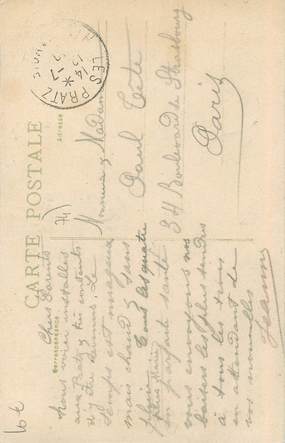 CARTE POSTALE
Correspondance
Adresse
LES PRATZ
Chers Parents
Nous voici installés
aux Pratz & très contents
d'y être revenus. Le
temps est magnifique
mais chaud. Sans
pluie
Tous les quatre
en parfaite santé
vous envoyons nos
baisers les plus tendres
à tous les tous
en attendant de
vos nouvelles
Jeanne
Monsieur & Madame
Paul
34 Boulevard de Strasbourg
Paris
74
10 €